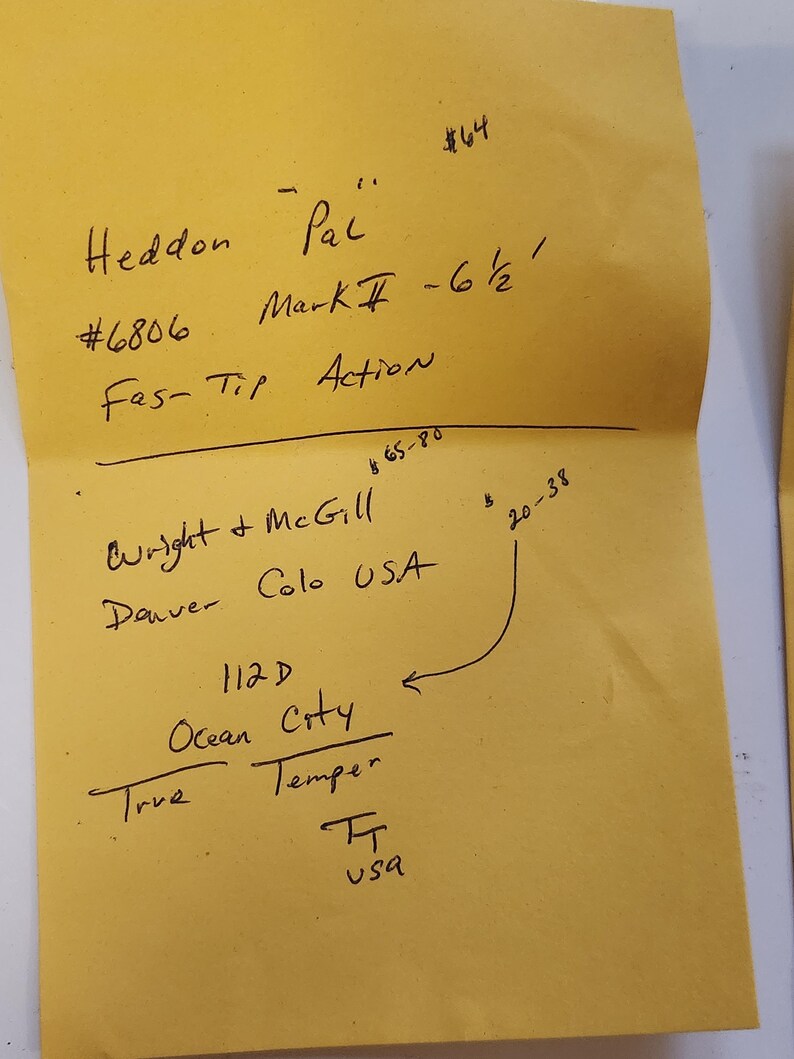 $64
Heddon "Pal"
#6806 Mark II - 6 1/2'
Fas-Tip Action
$65-80
Wright & McGill
Denver Colo USA
$20-38
112D
Ocean City
True Temper
TT
USA